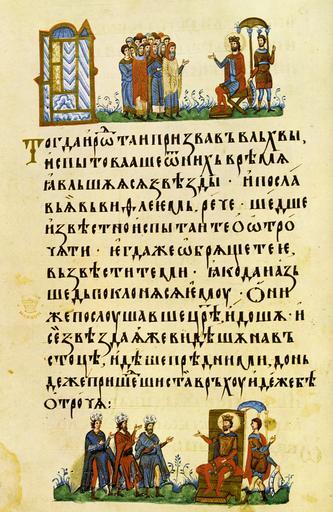 Тогда ирѡⷣ таи призвавъ влъхвы,
испытоваше ѿ нихъ врѣмѧ
ꙗвльшѧѧсѧ звѣзды · и посла
въ виѳлеемь, рече · шедше
извѣстно испытаите ѡ отро
чѧти · егда же обрѧщете е,
възвѣстите ми · ꙗко да и азъ
шедь поклонюсѧ емоу · Они
же послоушавше цр҃ѣ, идошѧ · и
се звѣзда ѧже видѣшѧ на въ
стоцѣ, идѣше прѣд ними, донь
деже пришеⷣши ста връхоу идеже бѣ
отрочѧ :